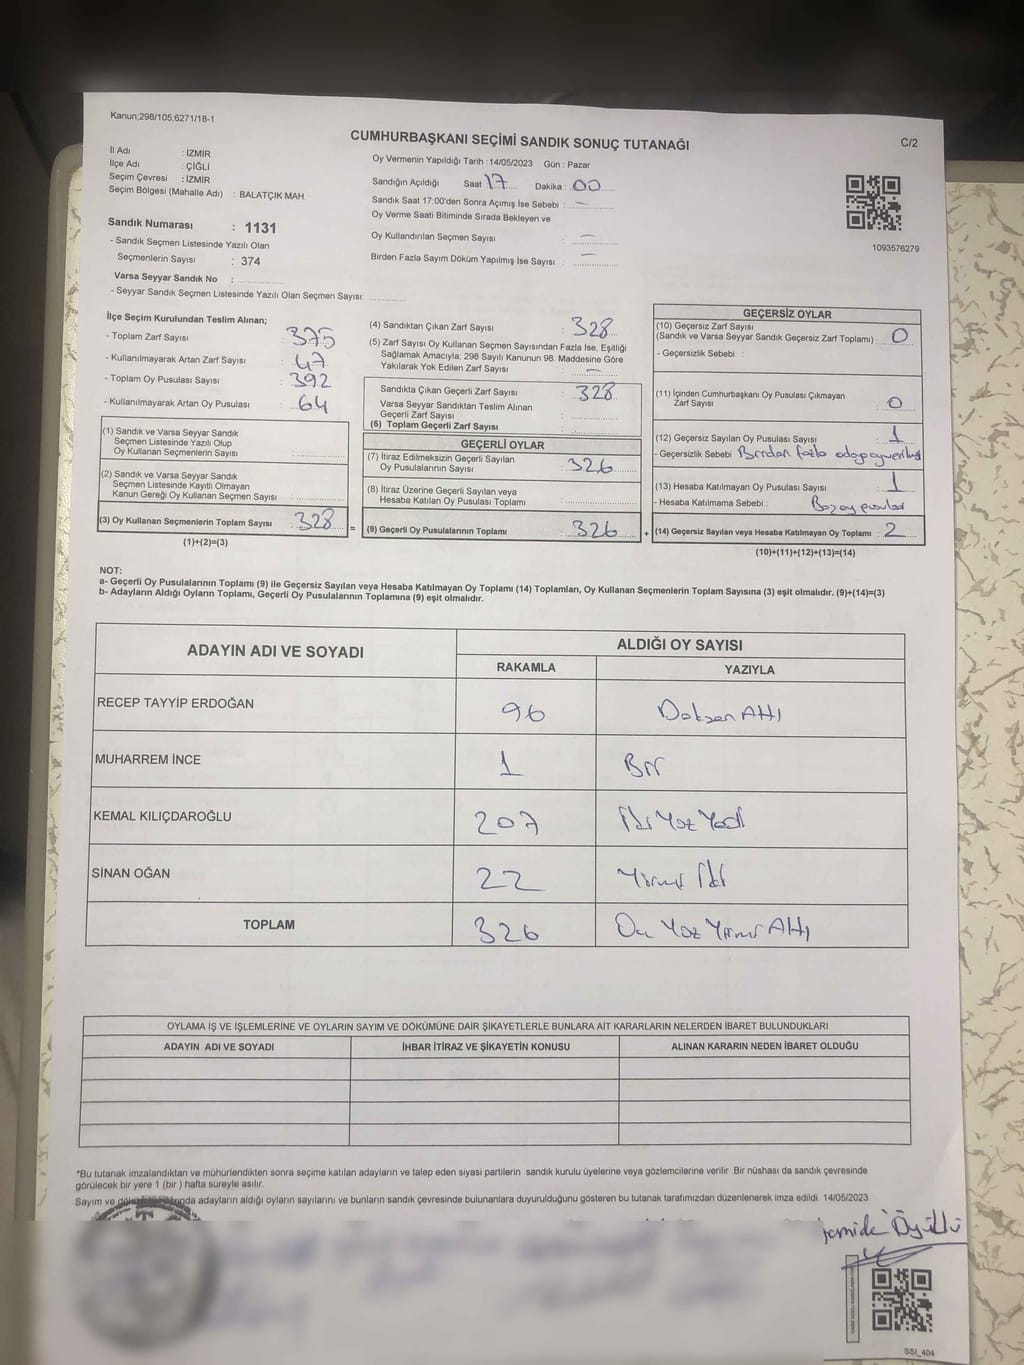 Kanun;298/105,6271/18-1
CUMHURBAŞKANI SEÇİMİ SANDIK SONUÇ TUTANAĞI
C/2
İl Adı : İZMİR
İlçe Adı : ÇİĞLİ
Seçim Çevresi : İZMİR
Seçim Bölgesi (Mahalle Adı) : BALATÇIK MAH.
Oy Vermenin Yapıldığı Tarih : 14/05/2023 Gün : Pazar
Sandığın Açıldığı Saat 17 Dakika : 00
Sandık Saat 17:00'den Sonra Açımış İse Sebebi : —
Oy Verme Saati Bitiminde Sırada Bekleyen ve
Oy Kullandırılan Seçmen Sayısı : —
Birden Fazla Sayım Döküm Yapılmış İse Sayısı : —
1093576279
Sandık Numarası : 1131
- Sandık Seçmen Listesinde Yazılı Olan
Seçmenlerin Sayısı : 374
Varsa Seyyar Sandık No :
- Seyyar Sandık Seçmen Listesinde Yazılı Olan Seçmen Sayısı:
İlçe Seçim Kurulundan Teslim Alınan;
- Toplam Zarf Sayısı : 375
- Kullanılmayarak Artan Zarf Sayısı : 47
- Toplam Oy Pusulası Sayısı : 392
- Kullanılmayarak Artan Oy Pusulası : 64
(1) Sandık ve Varsa Seyyar Sandık
Seçmen Listesinde Yazılı Olup
Oy Kullanan Seçmenlerin Sayısı :
(2) Sandık ve Varsa Seyyar Sandık
Seçmen Listesinde Kayıtlı Olmayan
Kanun Gereği Oy Kullanan Seçmen Sayısı :
(3) Oy Kullanan Seçmenlerin Toplam Sayısı : 328
(1)+(2)=(3)
=
(4) Sandıktan Çıkan Zarf Sayısı : 328
(5) Zarf Sayısı Oy Kullanan Seçmen Sayısından Fazla İse, Eşitliği
Sağlamak Amacıyla; 298 Sayılı Kanunun 98. Maddesine Göre
Yakılarak Yok Edilen Zarf Sayısı : —
Sandıkta Çıkan Geçerli Zarf Sayısı : 328
Varsa Seyyar Sandıktan Teslim Alınan
Geçerli Zarf Sayısı :
(6) Toplam Geçerli Zarf Sayısı :
GEÇERLİ OYLAR
(7) İtiraz Edilmeksizin Geçerli Sayılan
Oy Pusulalarının Sayısı : 326
(8) İtiraz Üzerine Geçerli Sayılan veya
Hesaba Katılan Oy Pusulası Toplamı :
(9) Geçerli Oy Pusulalarının Toplamı : 326
+
GEÇERSİZ OYLAR
(10) Geçersiz Zarf Sayısı
(Sandık ve Varsa Seyyar Sandık Geçersiz Zarf Toplamı) : 0
- Geçersizlik Sebebi :
(11) İçinden Cumhurbaşkanı Oy Pusulası Çıkmayan
Zarf Sayısı : 0
(12) Geçersiz Sayılan Oy Pusulası Sayısı : 1
- Geçersizlik Sebebi : Birden fazla
(13) Hesaba Katılmayan Oy Pusulası Sayısı : 1
- Hesaba Katılmama Sebebi :
(14) Geçersiz Sayılan veya Hesaba Katılmayan Oy Toplamı : 2
(10)+(11)+(12)+(13)=(14)
NOT:
a- Geçerli Oy Pusulalarının Toplamı (9) ile Geçersiz Sayılan veya Hesaba Katılmayan Oy Toplamı (14) Toplamları, Oy Kullanan Seçmenlerin Toplam Sayısına (3) eşit olmalıdır. (9)+(14)=(3)
b- Adayların Aldığı Oyların Toplamı, Geçerli Oy Pusulalarının Toplamına (9) eşit olmalıdır.
ADAYIN ADI VE SOYADI
ALDIĞI OY SAYISI
RAKAMLA YAZIYLA
RECEP TAYYİP ERDOĞAN 96 Doksan Altı
MUHARREM İNCE 1 Bir
KEMAL KILIÇDAROĞLU 207 İki Yüz Yedi
SİNAN OĞAN 22 Yirmi İki
TOPLAM 326 Üç Yüz Yirmi Altı
OYLAMA İŞ VE İŞLEMLERİNE VE OYLARIN SAYIM VE DÖKÜMÜNE DAİR ŞİKAYETLERLE BUNLARA AİT KARARLARIN NELERDEN İBARET BULUNDUKLARI
ADAYIN ADI VE SOYADI İHBAR İTİRAZ VE ŞİKAYETİN KONUSU ALINAN KARARIN NEDEN İBARET OLDUĞU
*Bu tutanak imzalandıktan ve mühürlendikten sonra seçime katılan adayların ve talep eden siyasi partilerin sandık kurulu üyelerine veya gözlemcilerine verilir .Bir nüshası da sandık çevresinde
görülecek bir yere 1 (bir ) hafta süreyle asılır.
Sayım ve dökümünda adayların aldığı oyların sayılarını ve bunların sandık çevresinde bulunanlara duyurulduğunu gösteren bu tutanak tarafımızdan düzenlenerek imza edildi. 14/05/2023
SSI_404